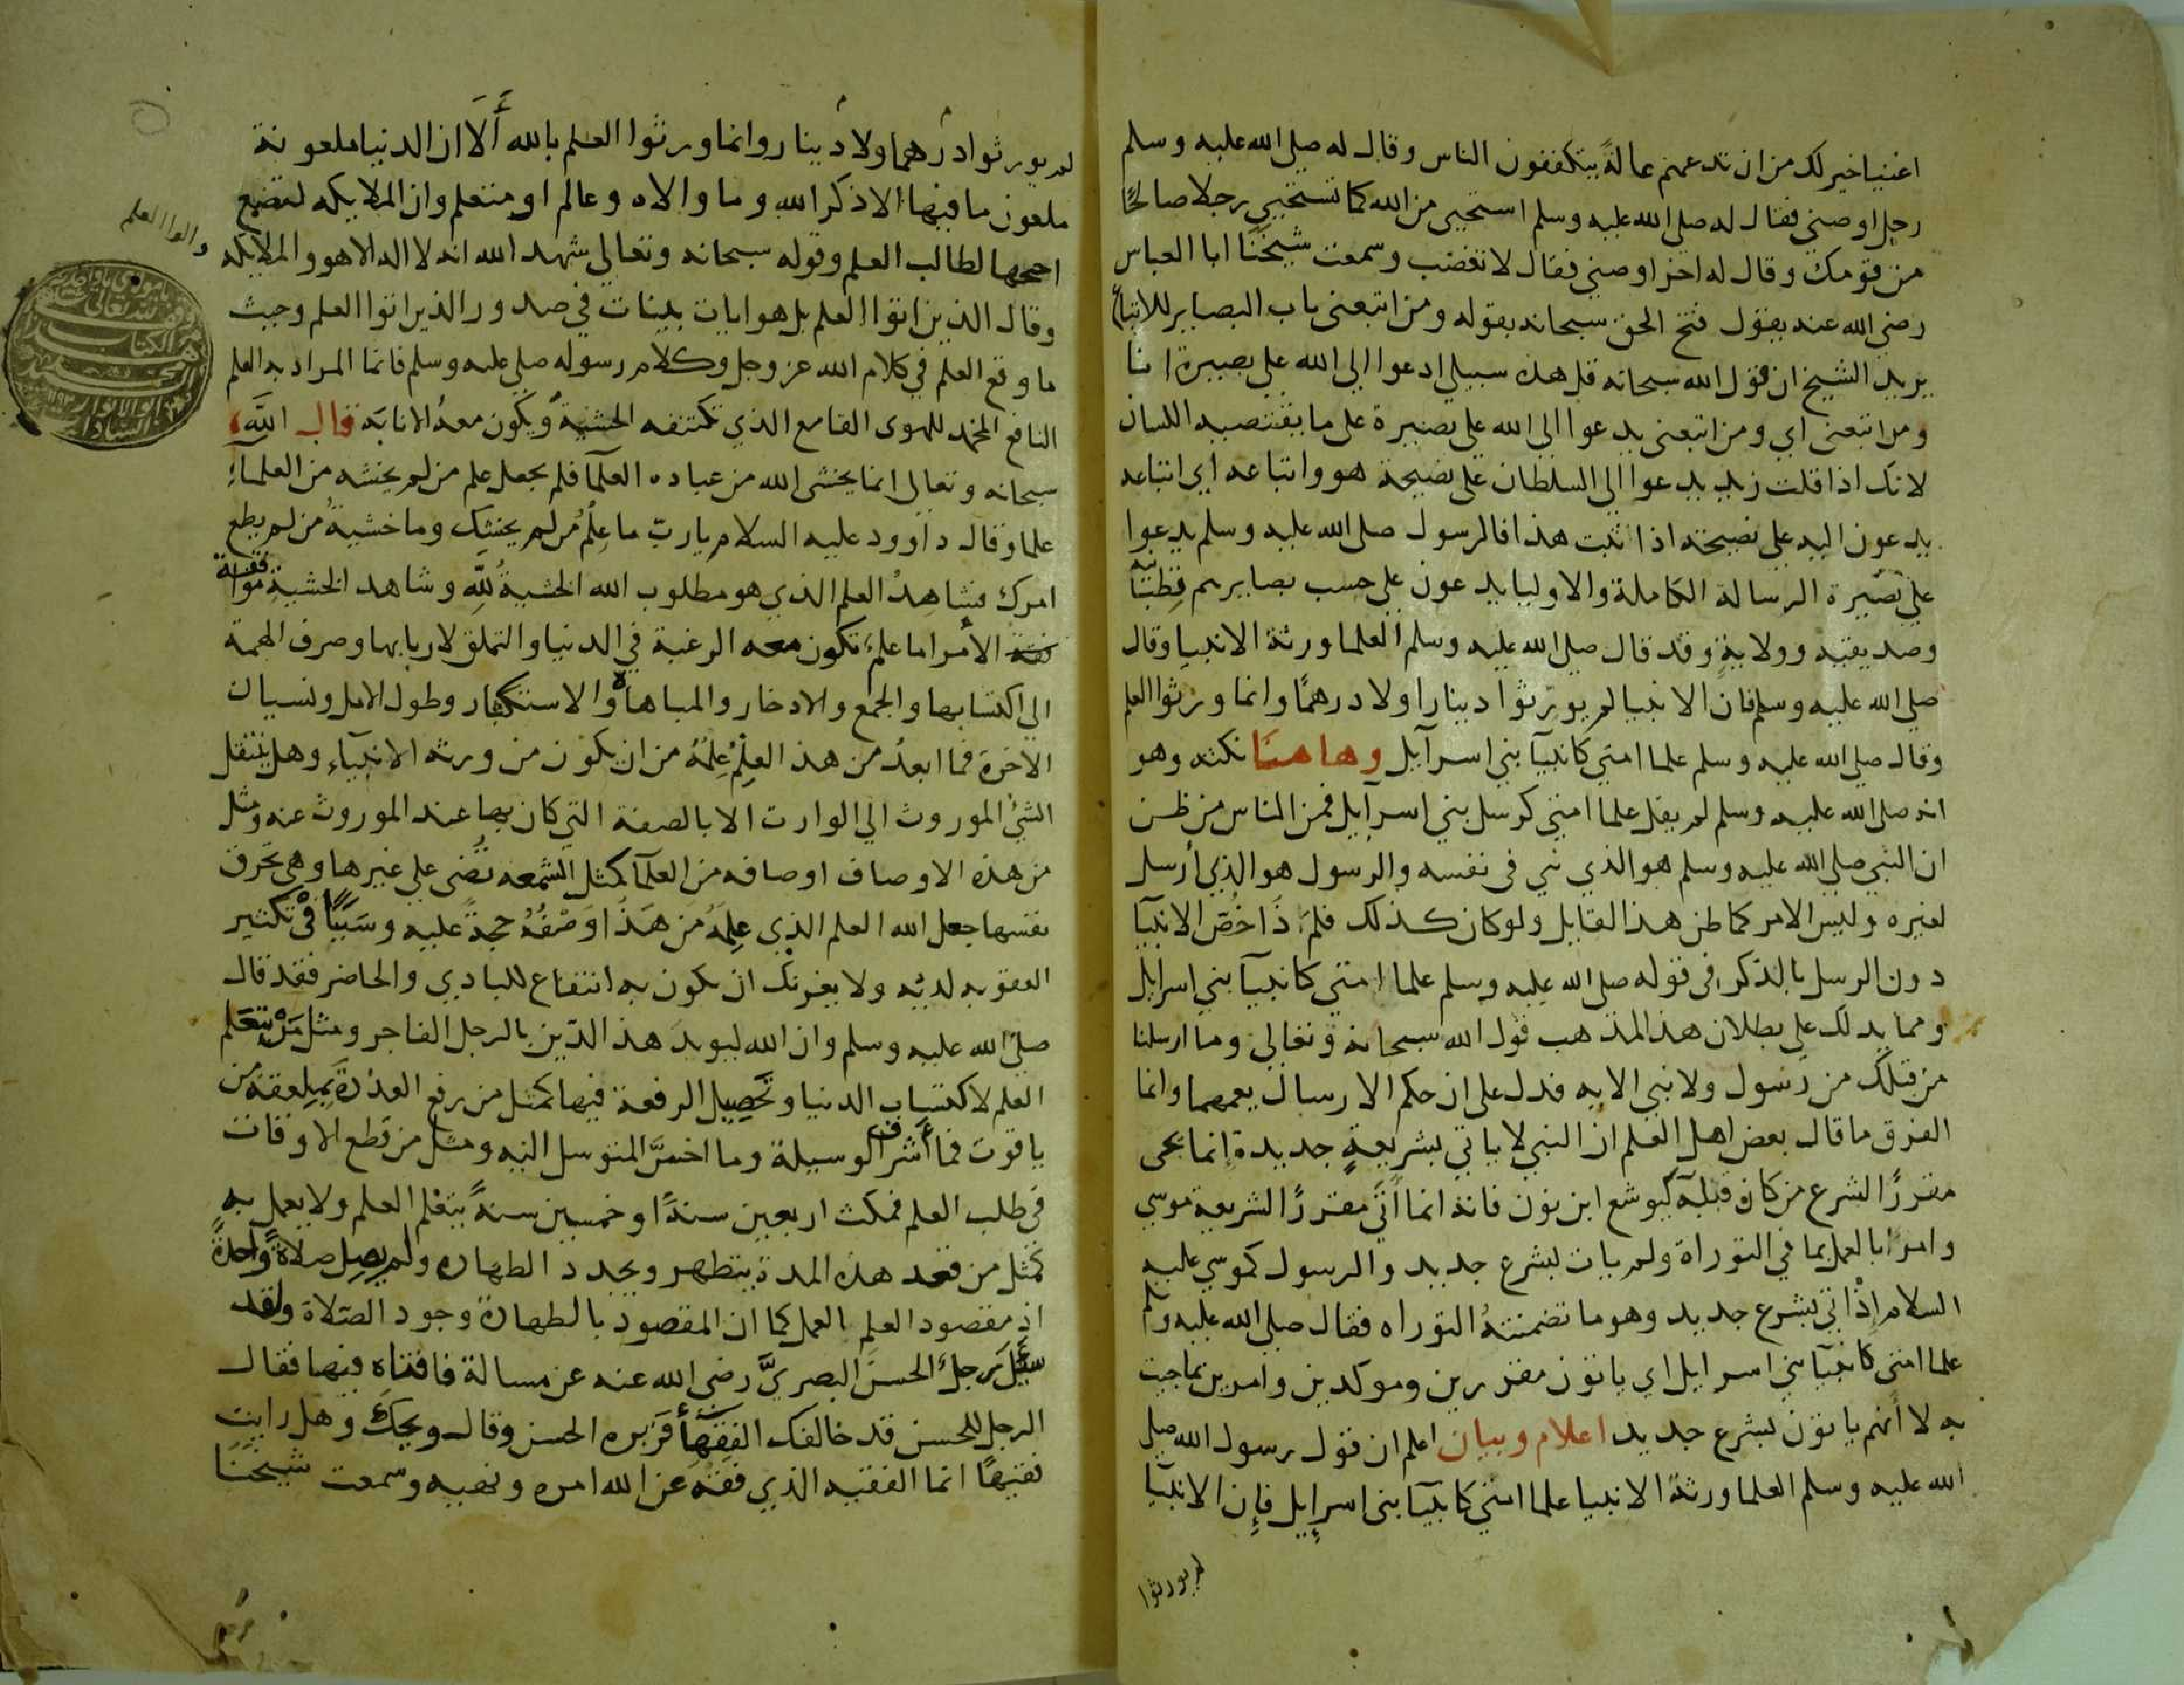 اغنيا خير لك من ان تدعهم عالةً يتكففون الناس وقال له صلى الله عليه وسلم
رجل اوصني فقال له صلى الله عليه وسلم استحيي من الله كما تستحيي رجلا صالحًا
من قومك وقال له اخر اوصني فقال لا تغضب وسمعت شيخَنَا ابا العباس
رضي الله عنه يقول فتح الحق سبحانه بقوله ومن اتبعني باب البصاير للاتباع
يريد الشيخ ان قول الله سبحانه قل هذه سبيلي ادعوا الى الله على بصيرة انا
ومن اتبعني اي ومن اتبعني يدعوا الى الله على بصيرة على ما يقتضيه اللسان
لانك اذا قلت زيد يدعوا الى السلطان على نصيحة هو واتباعه اي اتباعه
يدعون اليه على نصيحته اذا ثبت هذا فالرسول صلى الله عليه وسلم يدعوا
على بصيرة الرسالة الكاملة والاوليا يدعون على حسب بصايرهم قطبيّة
وصديقية وولاية وقد قال صلى الله عليه وسلم العلما ورثة الانبيا وقال
صلى الله عليه وسلم فان الانبيا لم يورّثوا دينارا ولا درهمًا وانما ورثوا العلم
وقال صلى الله عليه وسلم علما امتي كانبيآ بني اسرآيل وها هنا نكته وهو
انه صلى الله عليه وسلم لم يقل علما امتي كرسل بني اسرآيل فمن الناس من ظن
ان النبي صلى الله عليه وسلم هو الذي نبي في نفسه والرسول هو الذي أرسل
لغيره وليس الامر كما ظن هذا القايل ولو كان كذلك فلمَ ذَا خُصّ الانبيآ
دون الرسل بالذكر في قوله صلى الله عليه وسلم علما امتي كانبيآ بني اسرايل
ومما يدلك على بطلان هذا المذهب قول الله سبحانه وتعالى وما ارسلنا
من قبلك من رسول ولا نبي الايه فدل على ان حكم الارسال يعمهما وانما
الفرق ما قال بعض اهل العلم ان النبي لا ياتي بشريعةٍ جديدة انما يجى
مقررًا لشرع من كان قبله كيوشع ابن نون فانه انما أتَى مقررًا لشريعة موسى
وامرا بالعمل بما في التوراة ولم يات بشرع جديد والرسول كموسى عليه
السلام إذْ اتى بشرع جديد وهو ما تضمنتهُ التوراه فقال صلى الله عليه وسلم
علما امتي كانبيآ بني اسرايل اي ياتون مقررين وموكدين وامرين بما جيت
به لا أنهم ياتون بشرع جديد اعلام وبيان اعلم ان قول رسول الله صلى
الله عليه وسلم العلما ورثة الانبيا علما امتي كانبيآ بني اسرايل فإن الانبيآ
لم يورثوا
لم يورثوا درهما ولا دينارا وانما ورثوا العلم بالله أَلَا ان الدنيا ملعونة
ملعون ما فيها الا ذكر الله وما والاه وعالم او متعلم وان الملايكه لتضع
اجنحتها لطالب العلم وقوله سبحانه وتعالى شهد الله انه لا اله الا هو والملايكه
والوا العلم
وقال الذين اتوا العلم بل هو ايات بينات في صدور الذين اتوا العلم وحيث
ما وقع العلم في كلام الله عز وجل وكلام رسوله صلى عليه وسلم فانما المراد به العلم
النافع المخمد للهوى القامع الذي تكتنفه الخشيةُ ويكون معهُ الانابَة قال اللَّه
سبحانه وتعالى انما يخشى الله من عباده العلمآ فلم يجعل علم من لم يخشه من العلمآءِ
علما وقال داوود عليه السلام يا ربّ ما عِلْمُ من لم يخشك وما خشيةُ من لم يطع
امرك فشاهدُ العلم الذي هو مطلوب الله الخشيةُ للّهِ وشاهد الخشيةِ موافقة
الأمر اما علمٌ تكون معه الرغبة في الدنيا والتملق لاربابها وصرف الهمة
الى اكتسابها والجمع والادخار والمباهاة والاستكبار وطول الامل ونسيان
الاخرة فما ابعدُ من هذا العِلْمُ عِلمُهُ من ان يكون من ورثه الانبيآءِ وهل ينتقل
الشئ الموروث الى الوارث الا بالصفة التي كان بها عند الموروث عنه ومثل
من هذه الاوصاف اوصافه من العلمآ كمثل الشمعه تُضى على غيرها وهي تَحرق
نفسها جعل الله العلم الذي عِلمَهُ من هَذَا وَصْفُهُ حجةً عليه وسَبَبًا في تكثير
العقوبه لديه ولا يغرنك ان يكون به انتفاع للبادي والحاضر فقد قال
صلى الله عليه وسلم وان الله ليويدَ هذا الدّين بالرجل الفاجر ومثل مَنْ يتعَلم
العلم لاكتساب الدنيا وتَحصِيل الرفعة فيها كمثل من رفع العذرَةَ بمِلعقةٍ من
ياقوت فما أشرف الوسيلة وما اخسَّ المتوسل اليه ومثل من قطع الاوقات
في طلب العلم فمكث اربعين سنةً او خمسين سنةً يتعْلم العلم ولا يعمل به
كمثل من قعد هذه المدة يتطهر ويجدد الطهاره ولم يصل صلاةً واحدةً
اذ مقصود العلمِ العمل كما ان المقصود بالطهارة وجود الصّلاة ولقد
سئل رجلٌ الحسنَ البصريَّ رضي الله عنه عن مسالة فافتاه فيها فقال
الرجل للحسن قد خالفك الفقهآءُ فزبره الحسن وقال ويحكَ وهل رايت
فقيهًا انما الفقيه الذي فقهَ عن الله امره ونهيه وسمعت شيخَنَا